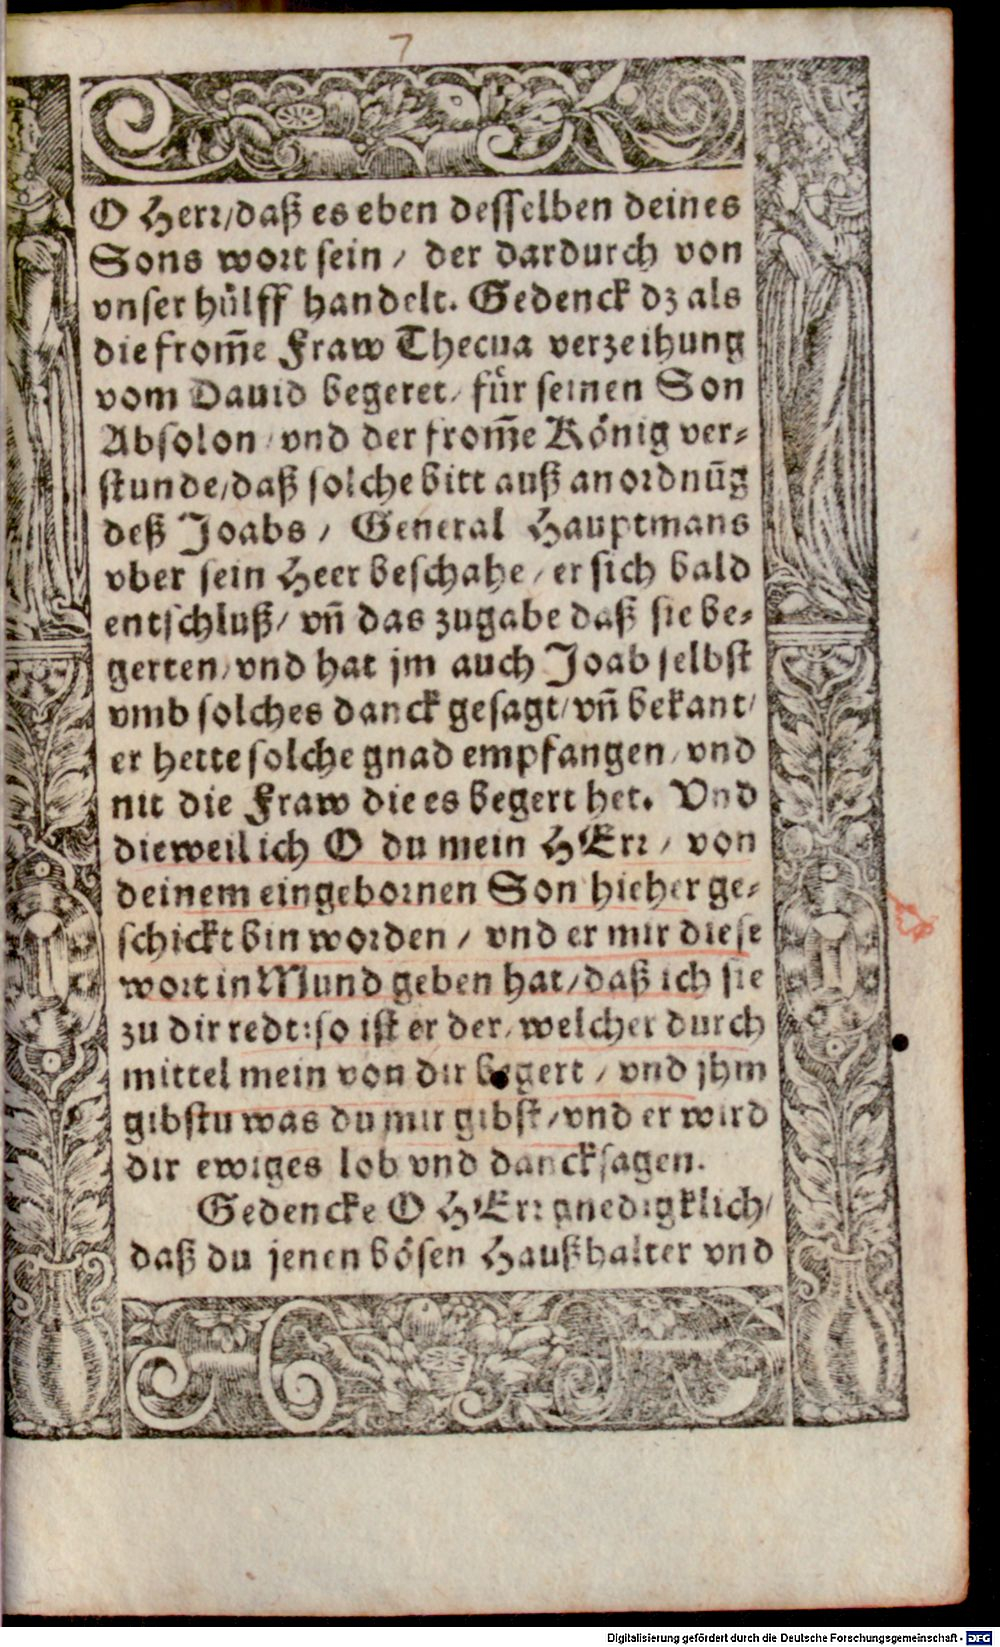 7
O Herr/daß es eben desselben deines
Sons wort sein / der dardurch von
vnser hülff handelt. Gedenck dz als
die from̄e Fraw Thecua verzeihung
vom Dauid begeret/ für seinen Son
Absolon/ vnd der from̄e König ver⸗
stunde/daß solche bitt auß anordnūg
deß Joabs / General Hauptmans
vber sein Heer beschahe/ er sich bald
entschluß/ vn̄ das zugabe daß sie be⸗
gerten/vnd hat jm auch Joab selbst
vmb solches danck gesagt/vn̄ bekant/
er hette solche gnad empfangen/ vnd
nit die Fraw die es begert het. Vnd
dieweil ich O du mein HErr / von
deinem eingebornen Son hieher ge⸗
schickt bin worden / vnd er mir diese
wort in Mund geben hat/daß ich sie
zu dir redt:so ist er der/ welcher durch
mittel mein von dir begert / vnd jhm
gibstu was du mir gibst/vnd er wird
dir ewiges lob vnd dancksagen.
Gedencke O HErr gnedigklich/
daß du jenen bösen Haußhalter vnd
Digitalisierung gefördert durch die Deutsche Forschungsgemeinschaft - DFG